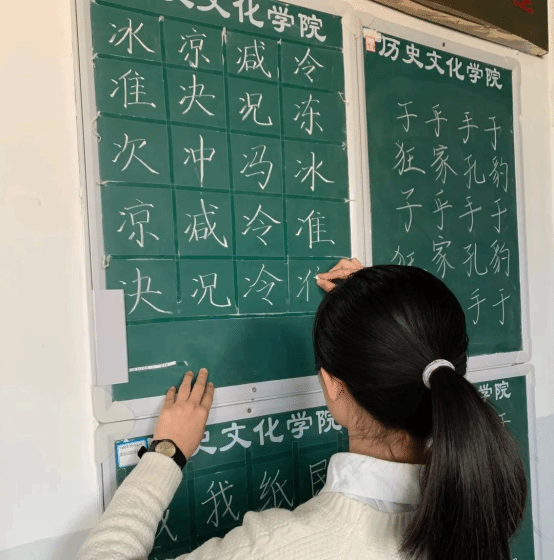 史文化学院
冰 凉 减 冷
准 决 况 冻
次 冲 冯 冰
凉 减 冷 准
决 况 冷
历史文化学院
于 乎 手 于
狂 家 孔 豹
子 乎 手 于
狂 家 孔 豹
手 于
史文化学院
我 纸
学院